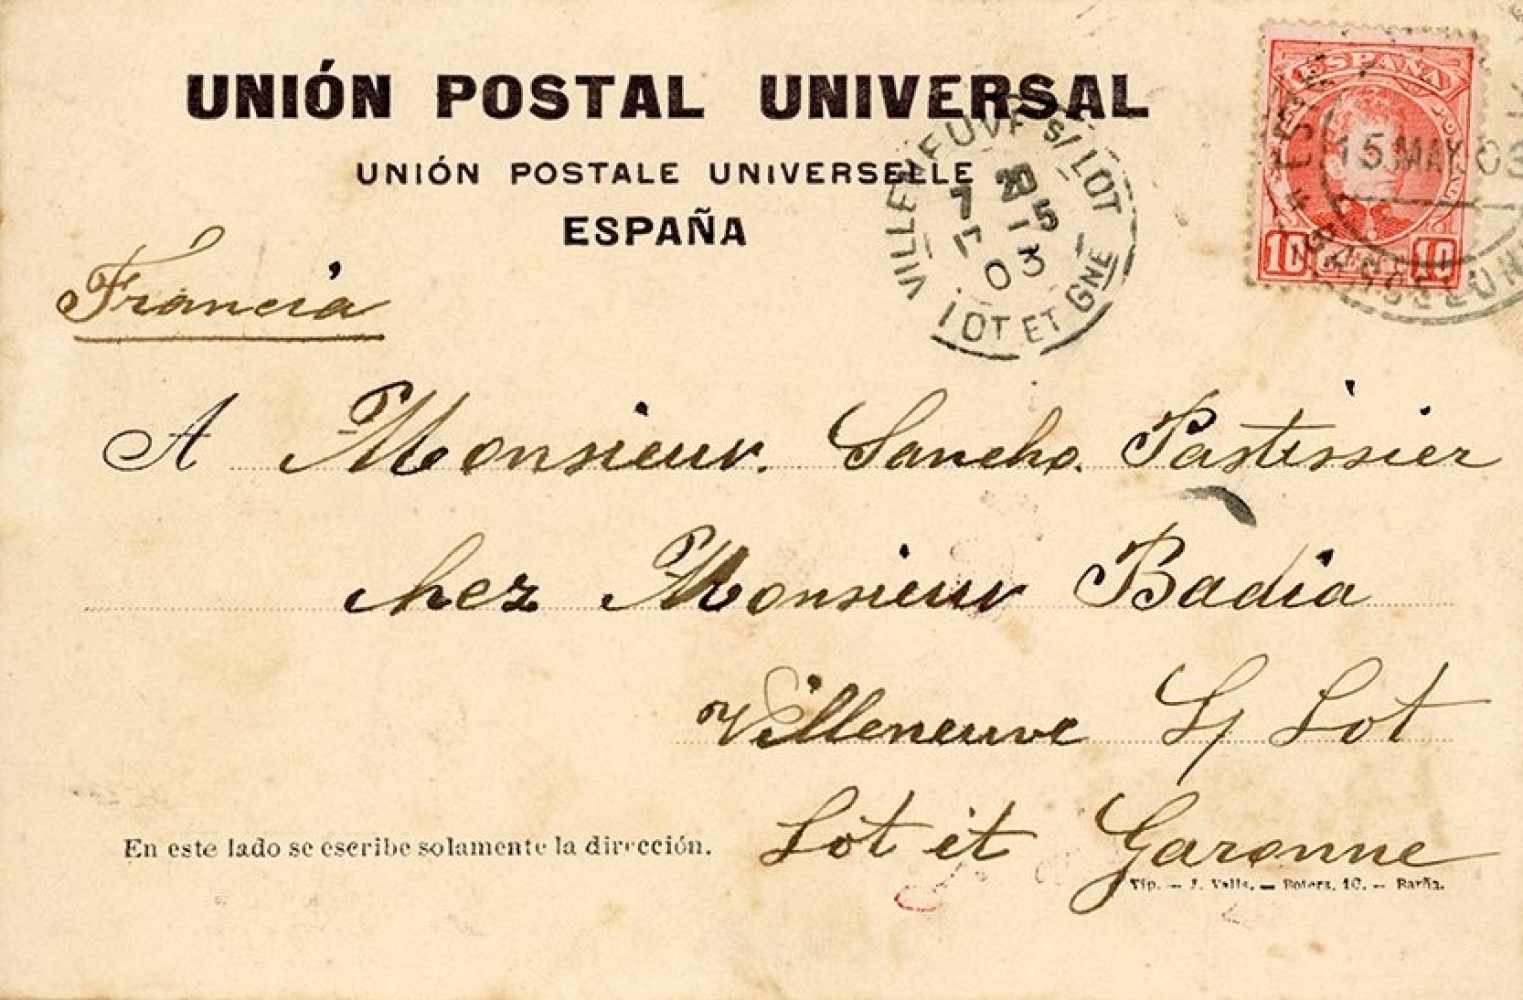 UNIÓN POSTAL UNIVERSAL
UNIÓN POSTALE UNIVERSELLE
ESPAÑA
VILLENEUVE S/ LOT
7
5
03
LOT ET GNE
ESPAÑA
15 MAY 03
BARCELONA
10 10
Francia
A Monsieur. Sancho. Pastissier
chez Monsieur Badia
Villeneuve S/ Lot
Lot et Garonne
En este lado se escribe solamente la dirección.
Tip. — J. Valls. — Boters, 10. — Barña.